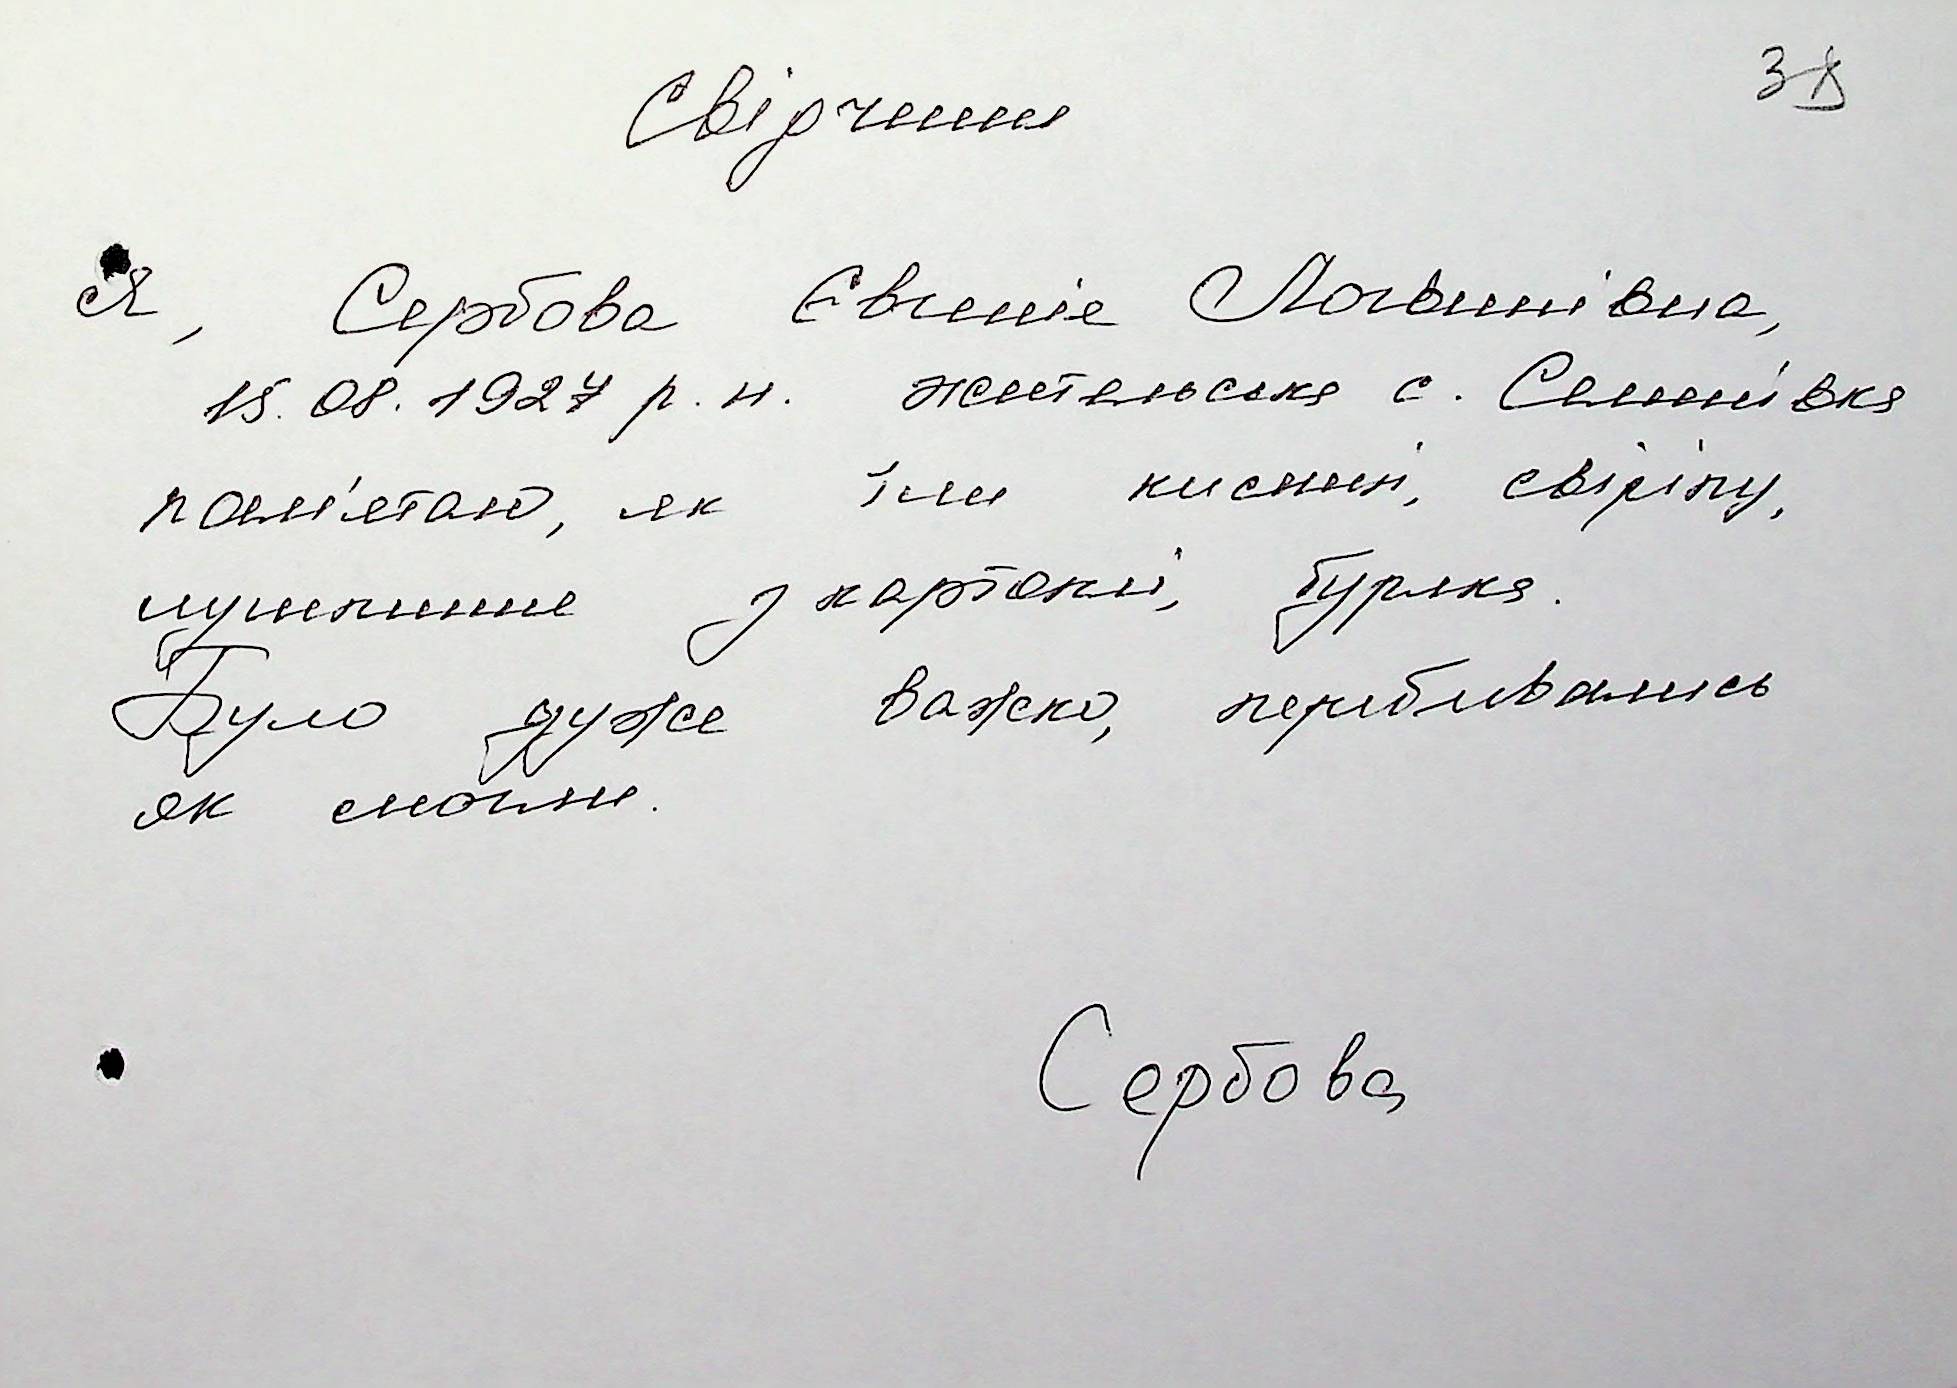 Свідчення
Я, Сербова Євгенія Логвинівна,
15.08.1927 р.н. жителька с. Семенівка
пам'ятаю, як їли кисляк, свіріпу,
лушпиння з картоплі, буряка.
Було дуже важко, перебивались
як могли.
Сербова